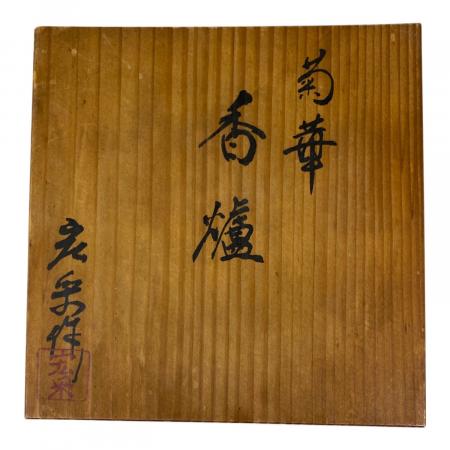 菊華
香爐
宏幸作